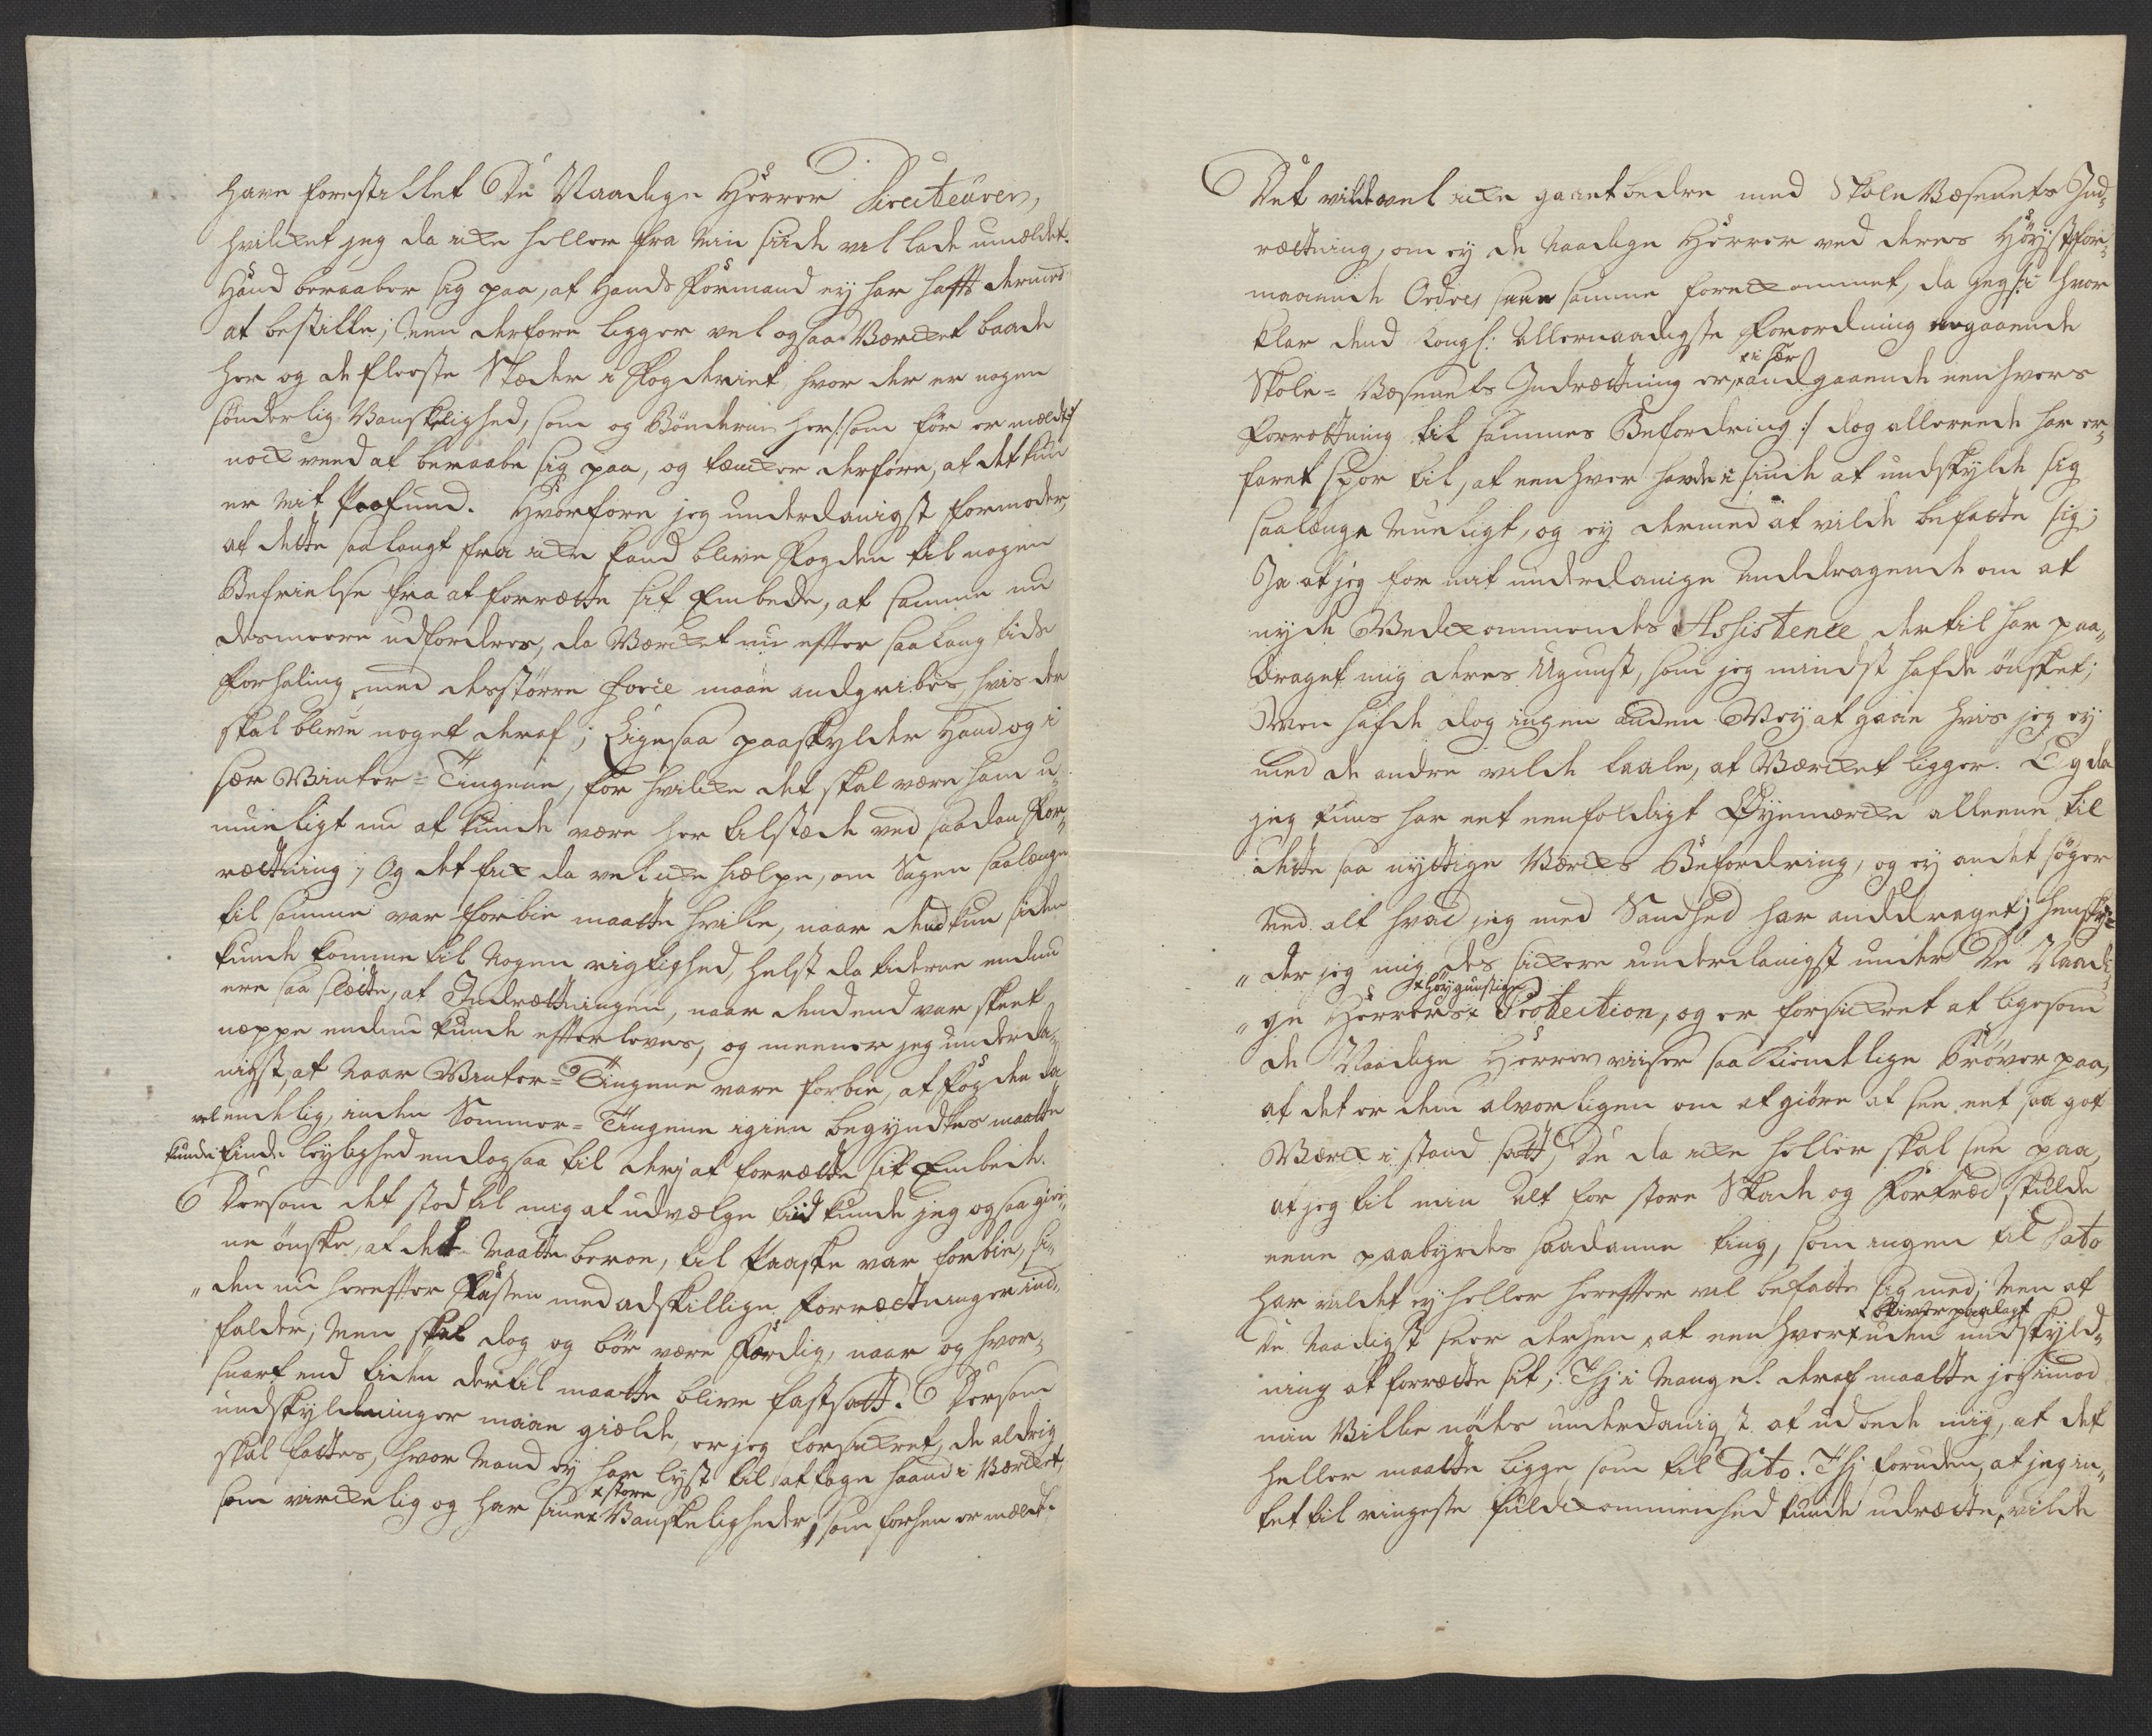 have forestillet De Naadige Herrer Directeurer,
hvilcket jeg da icke heller fra min siide vil lade umældet.
Hand beraaber sig paa, at Hands Formand ey har hafft dermed
at bestille; men derfore ligger vel ogsaa Wercket baade
her og de fleeste Stæder i Fogderiet, hvor der er nogen
sønderlig Vanskelighed, som og Bønderne her /: som før er meldt :/
nock veed at beraabe sig paa, og tencker derfore, at det kun
er mit Paafund. Hvorfore jeg underdanigst formoder,
at dette saa langt fra icke kand blive Fogden til nogen
Befrielse fra at forrætte sit Embede, at samme nu
desmeere udfordres, da Wercket nu efter saa lang tids
Forhaling med desstørre force maae andgribes, hvis der
skal blive noget deraf; Ligesaa paaskylder Hand og i
sær Winter-Tingene, for hvilcke det skal være ham u-
mueligt nu at kunde være her tilstæde ved saadan For-
rættning; Og det fick da vel icke hielpe, om Sagen saalenge
til samme var forbie maatte hvile, naar dend kun siden
kunde komme til nogen rigtighed, helst da tiderne endnu
ere saa slætte, at Indrættningen, naar dend end var skeet
neppe endnu kunde efterleves, og meener jeg underda-
nigst, at naar Winter-Tingene vare forbie, at Fogden da
vel endelig, inden Sommer-Tingene igien begyndtes maatte
kunde finde leylighed endogsaa til derj at forrætte sit Embede.
Dersom det stod til mig at udvælge tiid kunde jeg ogsaa gier-
ne ønske, at det maatte beroe, til Paaske var forbie, si-
den nu herefter Fasten med adskillige Forrættninger ind-
falder; men skal dog og bør være færdig, naar og hvor-
snart end tiden dertil maatte blive fastsatt. Dersom
undskyldninger maae gielde, er jeg forsickret, de aldrig
skal fattes, hvor mand ey har lyst til at tage haand i Wercket,
som virckelig og har sine x store Vanskeligheder, som forhen er meldt.
Det vilde vel icke gaaet bedre med Skole Wæsenets Ind-
rættning, om ey de Naadige Herrer ved deres Høystfor-
maaende Ordres samme forekommet, da jeg /: i hvor
klar dend Kongl: Allernaadigste Forordning angaaende
Skole-Wæsenets Indrættning er x i sær andgaaende eenhvers
Forrættning til sammes Befordring :/ dog allereede har er-
faret spor til, at eenhver havde i sinde at undskylde sig
saalænge mueligt, og ey dermed at vilde befatte sig;
Ja at jeg for mit underdanige Anddragende om at
nyde Wedkommendes Assistence dertil har paa-
draget mig deres Ugunst, som jeg mindst hafde ønsket;
Men hafde dog ingen anden Wey at gaae hvis jeg ey
med de andre vilde taale, at Wercket ligger. Og da
jeg kuns har eet eenfoldigt Øyemercke alleene til
dette saa nyttige Wercks Befordring, og ey andet søger
med alt hvad jeg med Sandhed har anddraget; henskyn-
der jeg mig des sickere underdanigst under De Naadi-
ge Herrers x høygunstige Protection, og er forsickret at ligesom
de Naadige Herrer viiser saa kiendelige Prøver paa,
at det er dem alvorligen om at giøre at see eet saa got
Werck i stand satt, De da icke heller skal see paa,
at jeg til min alt for store Skade og Fortred skulde
eene paabyrdes saadanne ting, som ingen til Dato
har vildet ey heller herefter vil befatte sig med; men at
De Naadigst seer derhen, at eenhver x bliver paalagt uden undskyld-
ning at forrætte sit; Thj i mangel deraf maatte jeg imod
min Villie nødes underdanigst at udbede mig, at det
heller maatte ligge som til Dato. Thj foruden, at jeg in-
tet til ringeste fuldkommenhed kunde udrætte, vilde